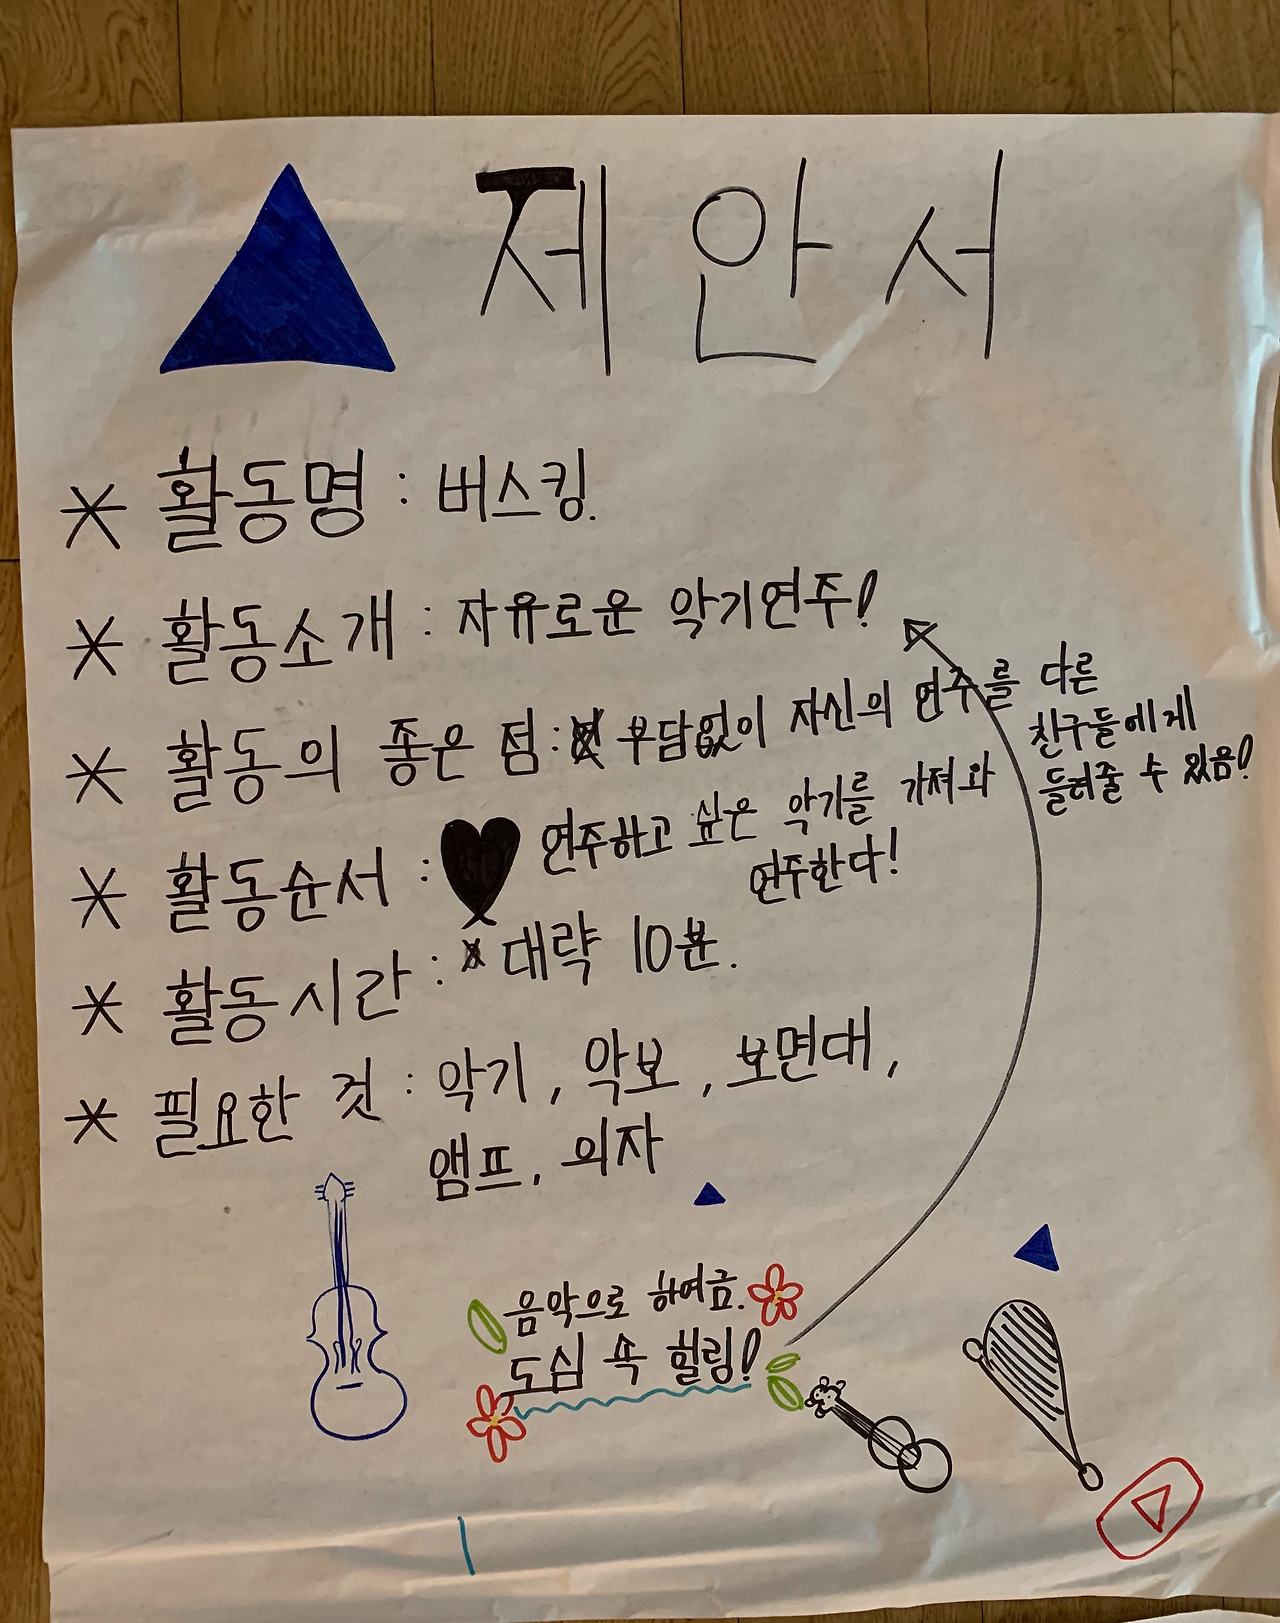 제안서
* 활동명 : 버스킹.
* 활동소개 : 자유로운 악기연주!
* 활동의 좋은 점 : 부담없이 자신의 연주를 다른
친구들에게
들려줄 수 있음!
* 활동순서 : 연주하고 싶은 악기를 가져와
연주한다!
* 활동시간 : 대략 10분.
* 필요한 것 : 악기, 악보, 보면대,
앰프, 의자
음악으로 하여금.
도심 속 힐링!